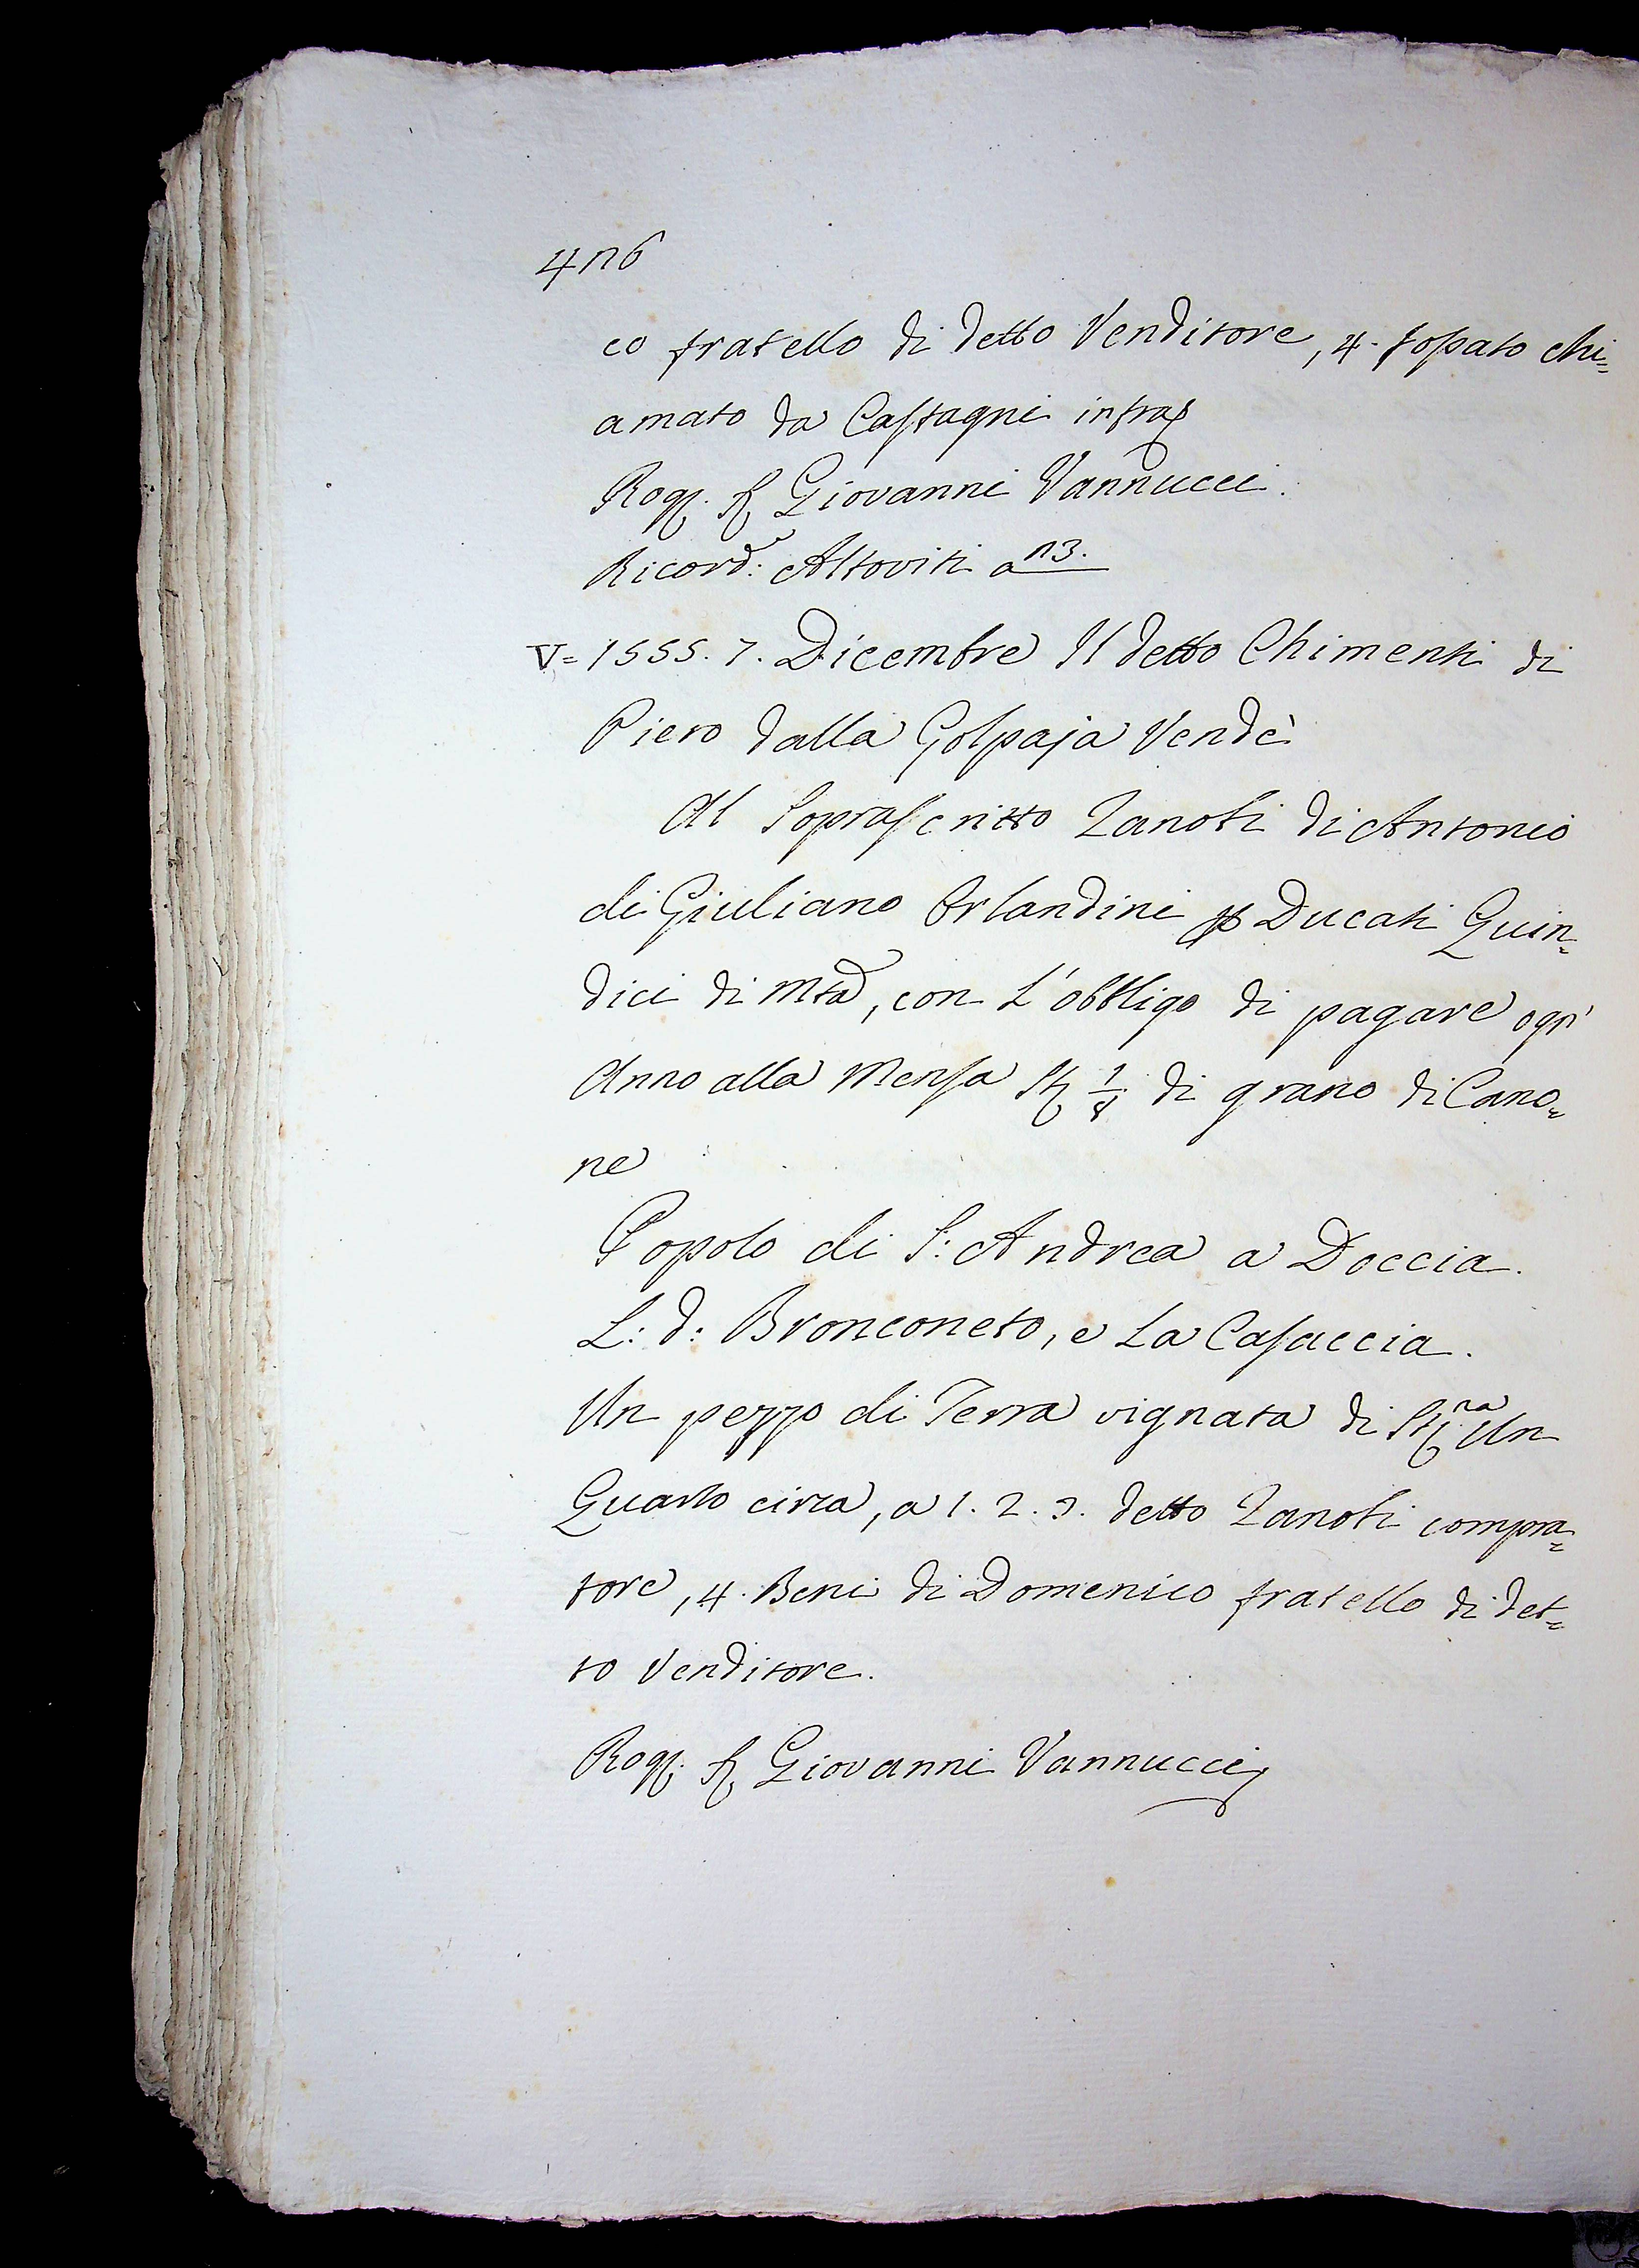 476
co fratello di detto Venditore, 4. fossato chi=
amato da Castagni infra
Rog. S. Giovanni Vannucci.
Ricord: Altoviti a 73.
V= 1555. 7. Dicembre Il detto Chimenti di
Piero dalla Golpaja Vendè
Al Soprascritto Zanobi di Antonio
di Giuliano Orlandini p Ducati Quin=
dici di mta, con l'obbligo di pagare ogn'
Anno alla Mensa St 1/8 di grano di Cano=
ne
Popolo di S: Andrea a Doccia.
L: d: Bronconeto, e La Casaccia.
Un pezzo di Terra vignata di St.ra Un
Quarto circa, a 1. 2. 3. detto Zanobi compra=
tore, 4. Beni di Domenico fratello di det=
to Venditore.
Rog. S. Giovanni Vannucci